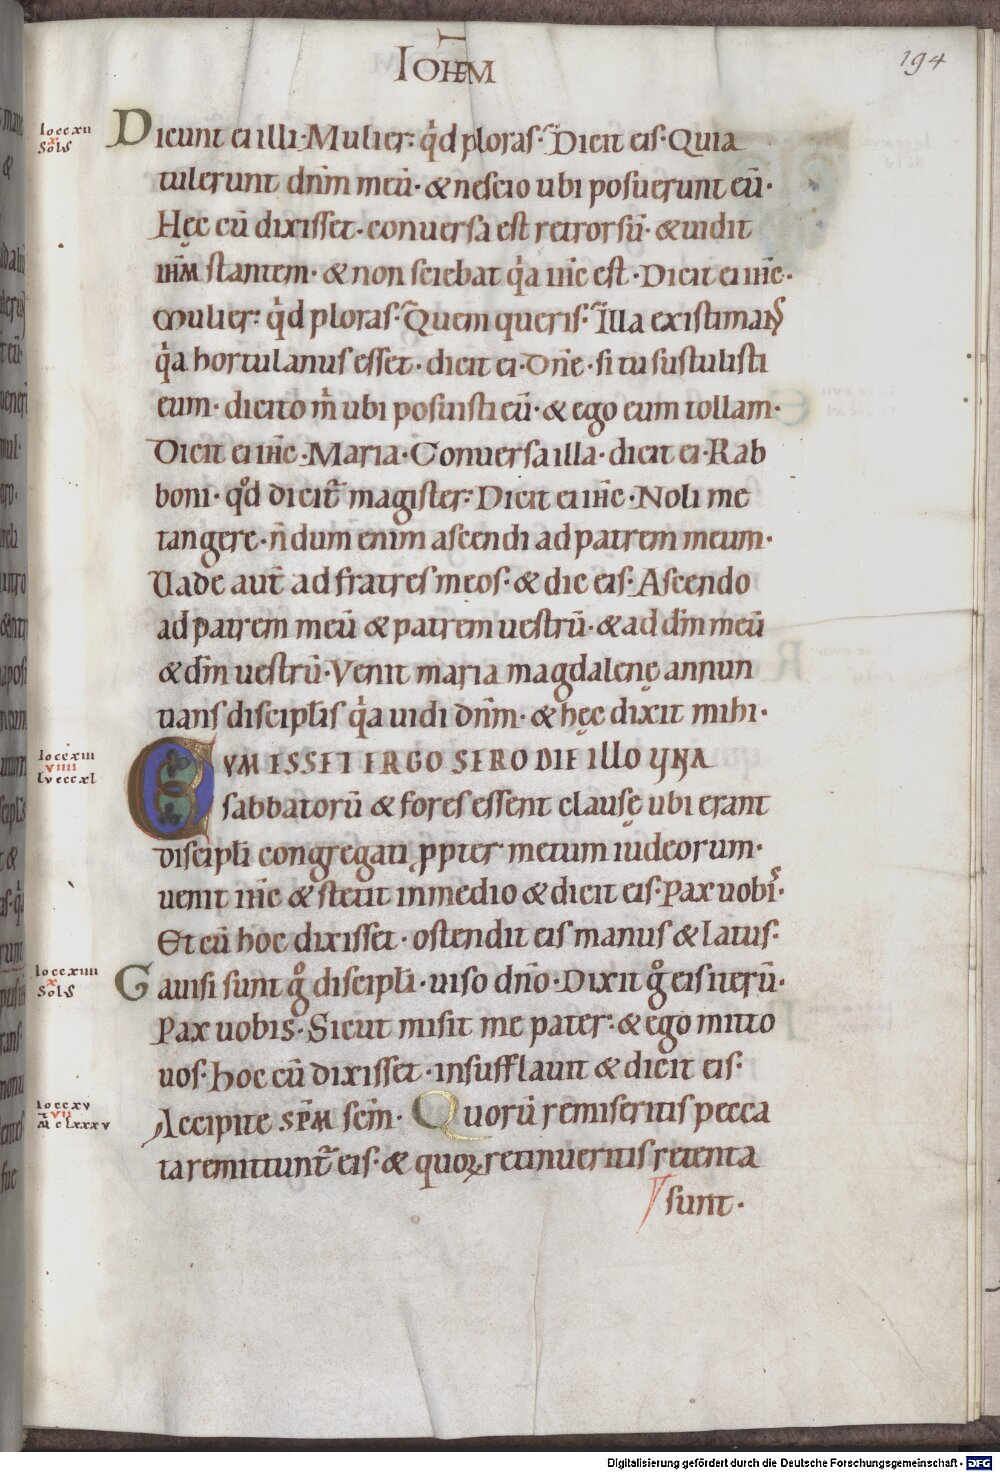 IOHEM
194
Io ccxii
x
Sols
Dicunt ei illi· Mulier: qͥd ploras· Dicit eis· Quia
tulerunt dn̅m meu̅· & nescio ubi posuerunt eu̅·
Hęc cu̅ dixisset· conuersa est retrorsu̅· & uidit
ih̅m stantem· & non sciebat qͥa ih̅c est· Dicit ei ih̅c·
Mulier: qͥd ploras· Quem queris· Illa existimans
qͥa hortulanus esset· dicit ei· Dn̅e· si tu sustulisti
eum· dicito mͥ ubi posuisti eu̅· & ego eum tollam·
Dicit ei ih̅c· Maria· Conuersa illa· dicit ei· Rab
boni· qͦd dicit̅ magister· Dicit ei ih̅c· Noli me
tangere· n̅dum enim ascendi ad patrem meum·
Uade aut̅ ad fratres meos· & dic eis· Ascendo
ad patrem meu̅ & patrem uestru̅· & ad dm̅ meu̅
& dm̅ uestru̅· Venit maria magdalenę annun
tians discipl̅is qͥa uidi dn̅m· & hęc dixit mihi·
Io ccxiii
viiii
Lu cccxl
CVM ESSET ERGO SERO DIE illo VNA
sabbatoru̅ & fores essent clausę ubi erant
discipl̅i congregati ꝓpter metum iudeorum·
uenit ih̅c & stetit in medio & dicit eis· Pax uobis·
Et cu̅ hoc dixisset· ostendit eis manus & latus·
Io ccxiiii
x
Sols
Gauisi sunt gͦ discipl̅i· uiso dn̅o· Dixit gͦ eis iteru̅·
Pax uobis· Sicut misit me pater: & ego mitto
uos· hoc cu̅ dixisset· insufflauit & dicit eis·
Io ccxv
vii
M clxxxv
Accipite sp̅m sc̅m· Quoru̅ remiseritis pecca
ta remittunt̅ eis· & quoꝝ retinueritis retenta
sunt·
Digitalisierung gefördert durch die Deutsche Forschungsgemeinschaft - DFG